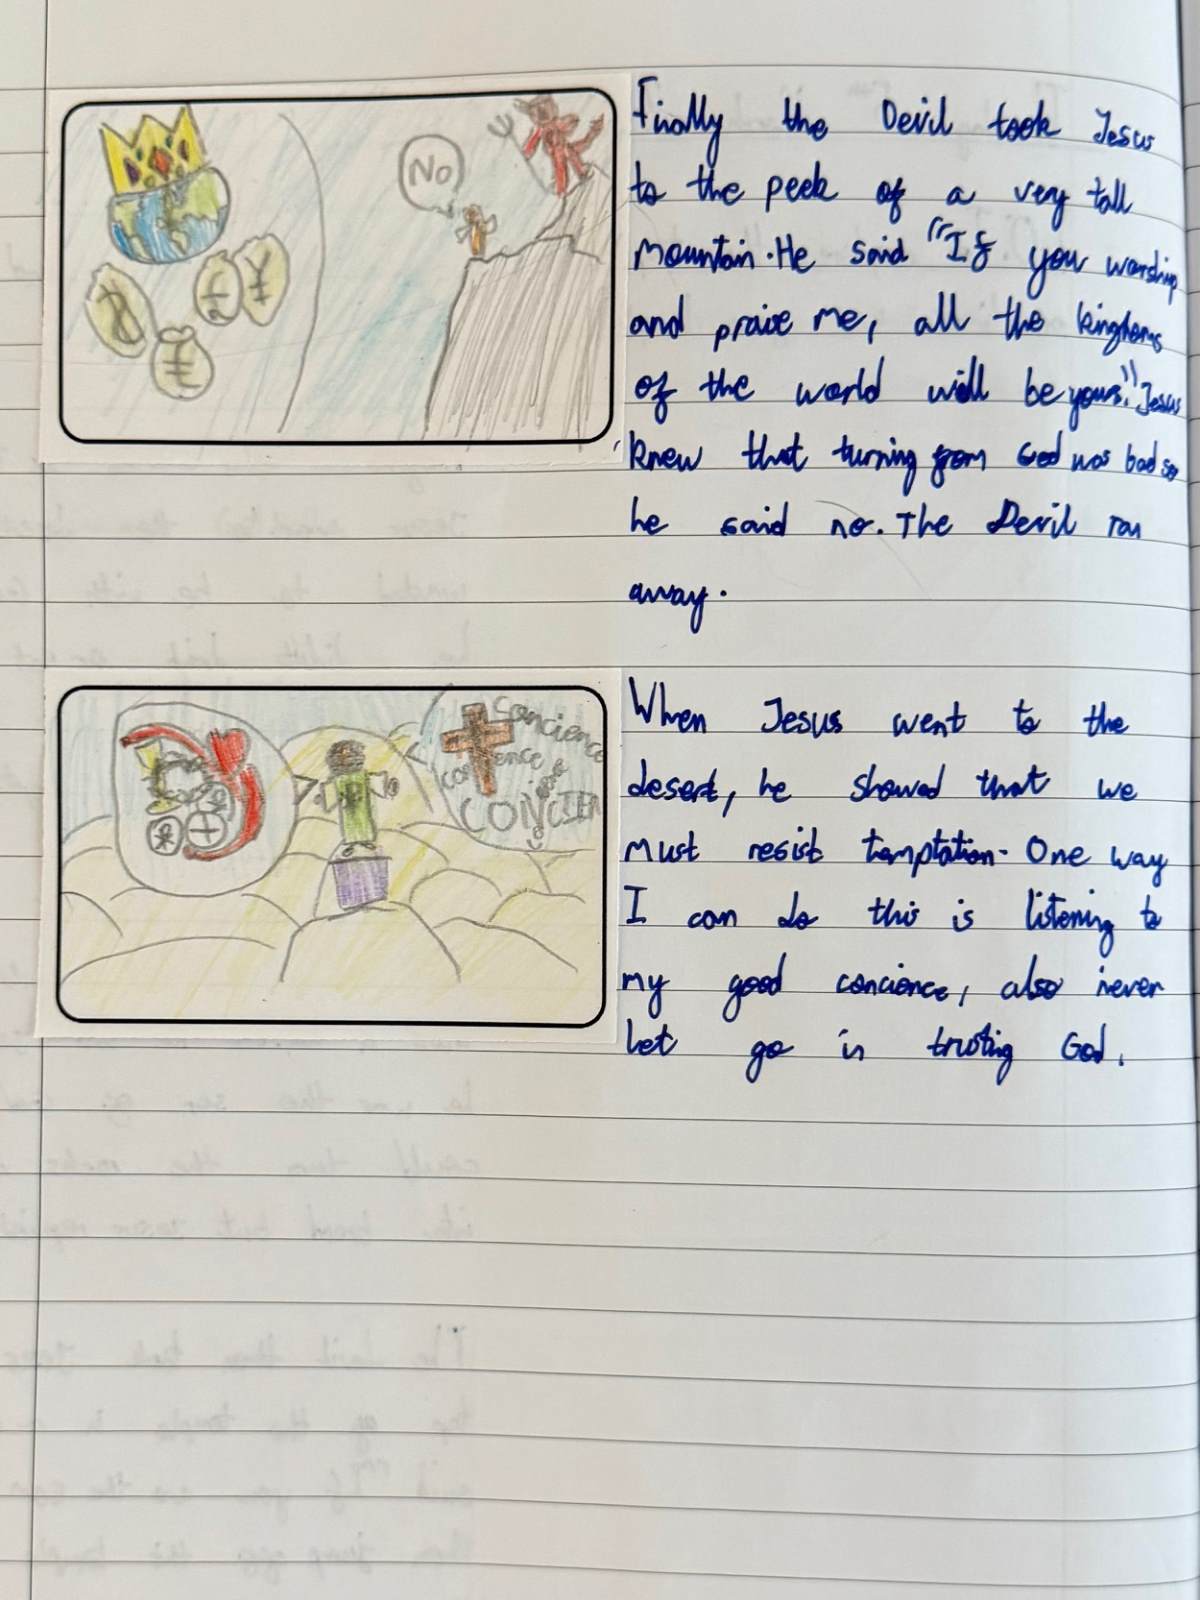 No
Finally the Devil took Jesus
to the peek of a very tall
mountain. He said "If you worship
and praise me, all the kingdoms
of the world will be yours." Jesus
knew that turning from God was bad so
he said no. The Devil ran
away.
Concience
CONCIEN
When Jesus went to the
desert, he showed that we
must resist temptation. One way
I can do this is listening to
my good concience, also never
let go in trusting God.